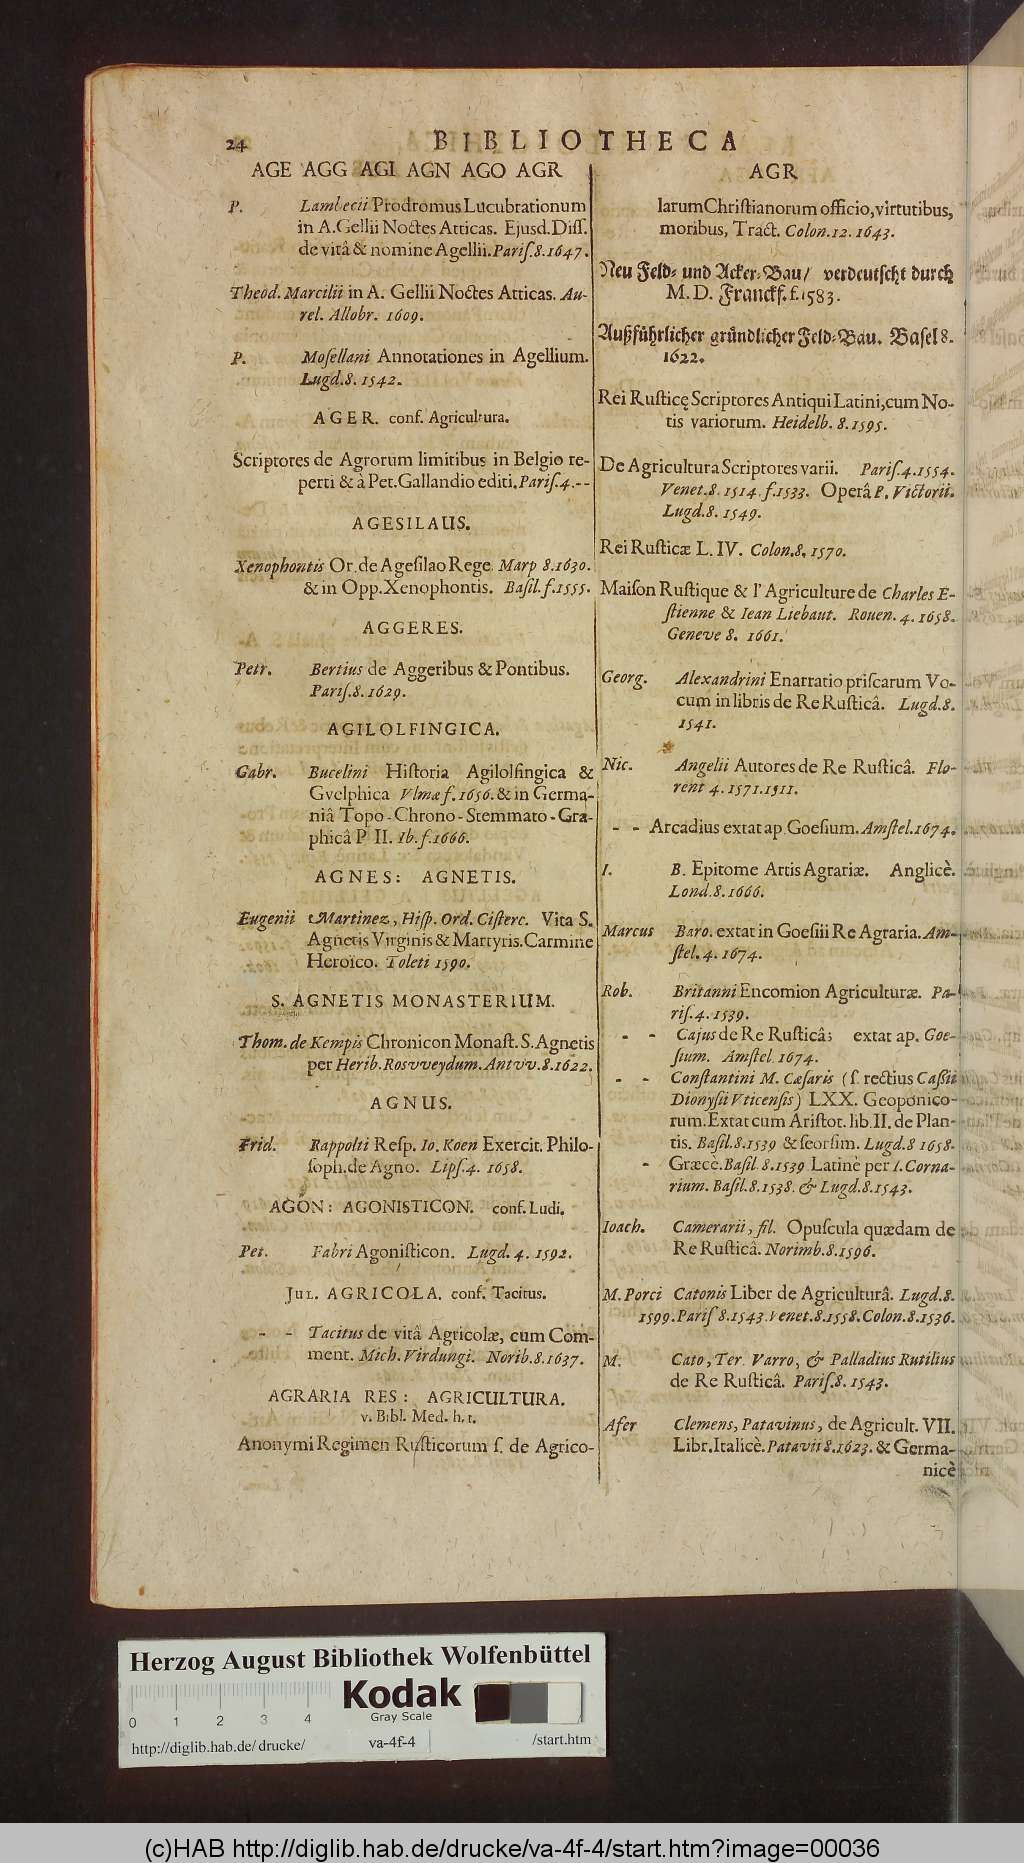 24 BIBLIOTHECA
AGE AGG AGI AGN AGO AGR
P. Lambecii Prodromus Lucubrationum
in A. Gellii Noctes Atticas. Ejusd. Diss.
de vitâ & nomine Agellii. Paris. 8. 1647.
Theod. Marcilii in A. Gellii Noctes Atticas. Au-
rel. Allobr. 1609.
P. Mosellani Annotationes in Agellium.
Lugd. 8. 1542.
AGER. conf. Agricultura.
Scriptores de Agrorum limitibus in Belgio re-
perti & à Pet. Gallandio editi. Paris. 4. --
AGESILAUS.
Xenophontis Or. de Agesilao Rege. Marp 8. 1630.
& in Opp. Xenophontis. Basil. f. 1555.
AGGERES.
Petr. Bertius de Aggeribus & Pontibus.
Paris. 8. 1629.
AGILOLFINGICA.
Gabr. Bucelini Historia Agilolfingica &
Gvelphica Vlmæ f. 1656. & in Germa-
niâ Topo-Chrono-Stemmato-Gra-
phicâ P II. Ib. f. 1666.
AGNES: AGNETIS.
Eugenii Martinez, Hisp. Ord. Cisterc. Vita S.
Agnetis Virginis & Martyris. Carmine
Heroico. Toleti 1590.
S. AGNETIS MONASTERIUM.
Thom. de Kempis Chronicon Monast. S. Agnetis
per Herib. Rosvveydum. Antvv. 8. 1622.
AGNUS.
Frid. Rappolti Resp. Io. Koen Exercit. Philo-
soph. de Agno. Lips. 4. 1658.
AGON: AGONISTICON. conf. Ludi.
Pet. Fabri Agonisticon. Lugd. 4. 1592.
JUL. AGRICOLA. conf. Tacitus.
- - Tacitus de vitâ Agricolæ, cum Com-
ment. Mich. Virdungi. Norib. 8. 1637.
AGRARIA RES: AGRICULTURA.
v. Bibl. Med. h. t.
Anonymi Regimen Rusticorum s. de Agrico-
AGR
larum Christianorum officio, virtutibus,
moribus, Tract. Colon. 12. 1643.
Neu Feld- und Acker-Bau/ verdeutscht durch
M. D. Franckf. f. 1583.
Außführlicher gründlicher Feld-Bau. Basel 8.
1622.
Rei Rusticę Scriptores Antiqui Latini, cum No-
tis variorum. Heidelb. 8. 1595.
De Agricultura Scriptores varii. Paris. 4. 1554.
Venet. 8. 1514. f. 1533. Operâ P. Victorii.
Lugd. 8. 1549.
Rei Rusticæ L. IV. Colon. 8. 1570.
Maison Rustique & l'Agriculture de Charles E-
stienne & Iean Liebaut. Rouen. 4. 1658.
Geneve 8. 1661.
Georg. Alexandrini Enarratio priscarum Vo-
cum in libris de Re Rusticâ. Lugd. 8.
1541.
Nic. Angelii Autores de Re Rusticâ. Flo-
rent 4. 1571. 1511.
- - Arcadius extat ap. Goesium. Amstel. 1674.
I. B. Epitome Artis Agrariæ. Anglicè.
Lond. 8. 1666.
Marcus Baro. extat in Goesiii Re Agraria. Am-
stel. 4. 1674.
Rob. Britanni Encomion Agriculturæ. Pa-
ris. 4. 1539.
- - Cajus de Re Rusticâ; extat ap. Goe-
sium. Amstel. 1674.
- - Constantini M. Cæsaris (s. rectius Cassii
Dionysii Vticensis) LXX. Geoponico-
rum. Extat cum Aristot. lib. II. de Plan-
tis. Basil. 8. 1539 & seorsim. Lugd. 8 1658.
- Græcè. Basil. 8. 1539 Latinè per I. Corna-
rium. Basil. 8. 1538. & Lugd. 8. 1543.
Ioach. Camerarii, fil. Opuscula quædam de
Re Rusticâ. Norimb. 8. 1596.
M. Porci Catonis Liber de Agriculturâ. Lugd. 8.
1599. Paris 8. 1543. Venet. 8. 1558. Colon. 8. 1536.
M. Cato, Ter. Varro, & Palladius Rutilius
de Re Rusticâ. Paris. 8. 1543.
Afer Clemens, Patavinus, de Agricult. VII.
Libr. Italicè. Patavii 8. 1623. & Germa-
nicè
Herzog August Bibliothek Wolfenbüttel
Kodak
Gray Scale
0 1 2 3 4
http://diglib.hab.de/drucke/ va-4f-4 /start.htm
(c)HAB http://diglib.hab.de/drucke/va-4f-4/start.htm?image=00036